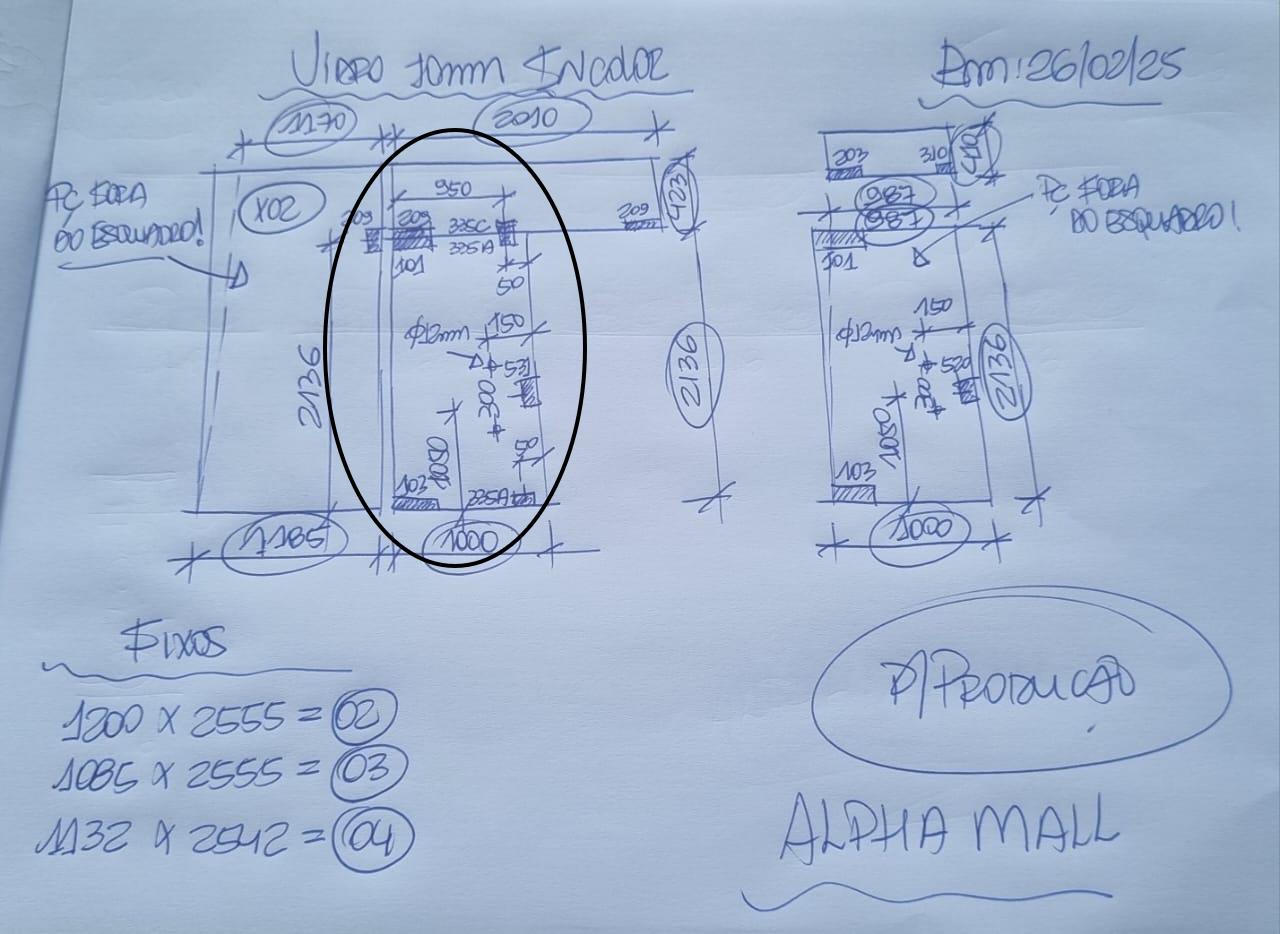 VIDRO 10mm INCOLOR
Em: 26/02/25
1170
2010
PÇ FORA
DO ESQUADRO!
X02
950
423
209
209
335C
335A
209
101
50
150
531
300
2136
2136
1050
50
103
335A
1185
1000
203
310
410
987
987
PÇ FORA
DO ESQUADRO!
101
150
520
300
2136
1050
103
1000
FIXOS
1200 X 2555 = 02
1085 X 2555 = 03
1132 X 2542 = 04
P/ PRODUCAO
ALPHA MALL